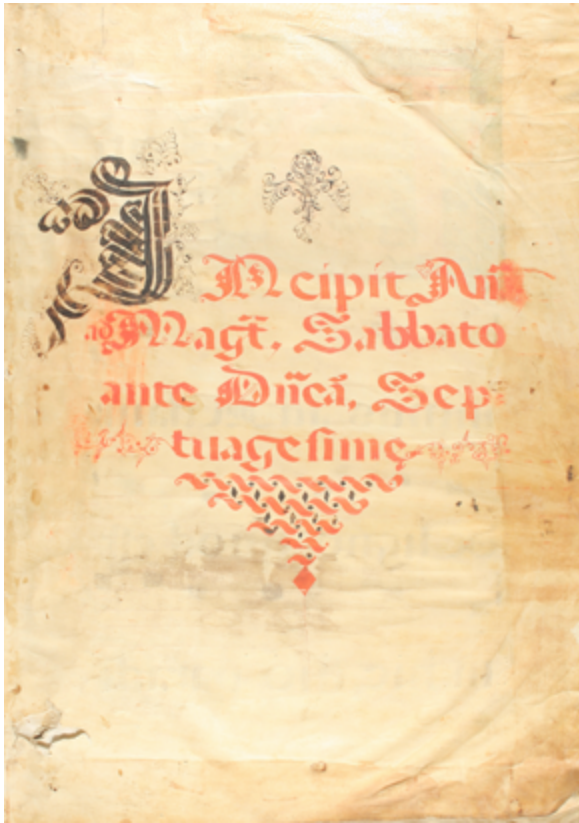 INcipit Añ
ad Magt̃. Sabbato
ante Dñcã. Sep⸗
tuagesime